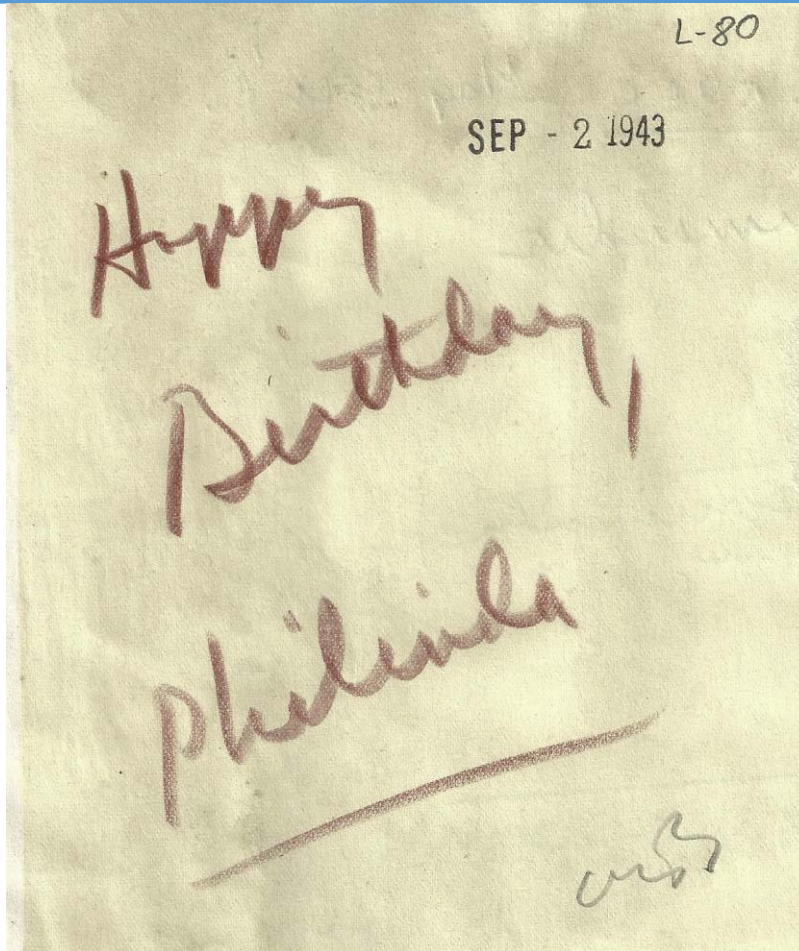 L-80
SEP - 2 1943
Happy
Birthday,
Philinda